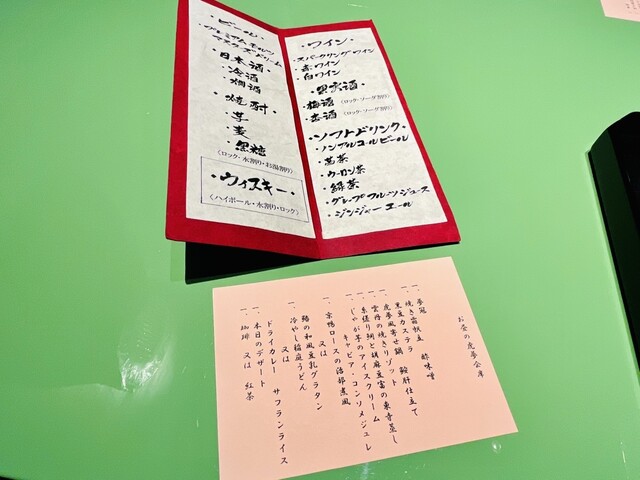 ・ビール・
・プレミアムモルツ
マスターズドリーム
・日本酒・
・冷酒
・燗酒
・焼酎・
・芋
・麦
・黒糖
（ロック・水割り・お湯割り）
・ウイスキー・
（ハイボール・水割り・ロック）
・ワイン・
・スパークリングワイン
・赤ワイン
・白ワイン
・果実酒・
・梅酒（ロック・ソーダ割り）
・杏酒（ロック・ソーダ割り）
・ソフトドリンク・
・ノンアルコールビール
・煎茶
・ウーロン茶
・緑茶
・グレープフルーツジュース
・ジンジャーエール
お昼の虎夢会席
一、夢冠
一、焼き霜帆立 酢味噌
一、黒豆カステラ 鮟肝仕立て
一、虎夢風寄せ鍋
一、雲丹の焼きリゾット
一、糸縒り鯛と胡麻豆富の東寺蒸し
一、じゃが芋のアイスクリーム
キャビア・コンソメジュレ
一、京鴨ロースの治部煮風
又は
鱈の和風豆乳グラタン
一、冷やし稲庭うどん
又は
ドライカレー サフランライス
一、本日のデザート
一、珈琲 又は 紅茶